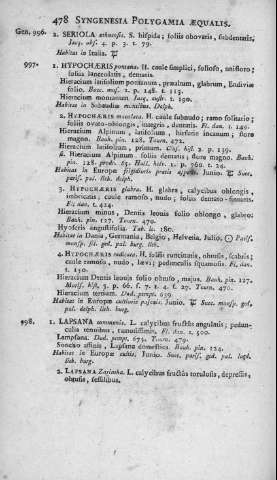 478 SYNGENESIA POLYGAMIA ÆQUALIS.
Gen. 996. 2. SERIOLA æthnensis. S. hispida; foliis obovatis, subdentatis.
Jacq. obs. 4. p. 3. t. 79.
Habitat in Italia.
997. 1. HYPOCHÆRIS pontana. H. caule simplici, folioso, unifloro;
foliis lanceolatis, dentatis.
Hieracium latifolium montanum, præaltum, glabrum, Endiviæ
folio. Bocc. mus. 2. p. 148. t. 113.
Hieracium montanum Jacq. austr. t. 190.
Habitat in Sabaudiæ montibus. Delph.
2. HYPOCHÆRIS maculata. H. caule subnudo; ramo solitario;
foliis ovato-oblongis, integris, dentatis. Fl. dan. t. 149.
Hieracium Alpinum, latifolium, hirsutie incanum, flore
magno. Bauh. pin. 128. Tourn. 472.
Hieracium latifolium, primum. Clus. hist. 2. p. 139.
Hieracium Alpinum, foliis dentatis; flore magno. Bauh.
pin. 128. prodr. 65. Hall. helv. 1. p. 760. n. 24.
Habitat in Europæ frigidioris pratis apricis. Junio. Suec.
paris. pal. lith. delph.
3. HYPOCHÆRIS glabra. H. glabra, calycibus oblongis,
imbricatis; caule ramoso, nudo; foliis dentato-sinuatis.
Fl. dan. t. 424.
Hieracium minus, Dentis leonis folio oblongo, glabro.
Bauh. pin. 127. Tourn. 470.
Hyoseris angustifolia. Tab. ic. 180.
Habitat in Dania, Germania, Belgio, Helvetia. Julio. Paris.
monsp. sil. ged. pal. burg. lith.
4. HYPOCHÆRIS radicata. H. foliis runcinatis, obtusis, scabris;
caule ramoso, nudo, lævi; pedunculis squamosis. Fl. dan.
t. 150.
Hieracium Dentis leonis folio obtuso, majus. Bauh. pin. 127.
Moris. hist. 3. p. 66. s. 7. t. 4. f. 27. Tourn. 470.
Hieracium tertium. Dod. pempt. 639.
Habitat in Europæ cultioris pascuis. Junio. Suec. monsp. ged.
pal. delph. lith. burg.
998. 1. LAPSANA communis. L. calycibus fructûs angulatis; pedun-
culis tenuibus, ramosissimis. Fl. dan. t. 500.
Lampsana. Dod. pempt. 675. Tourn. 479.
Soncho affinis, Lapsana domestica. Bauh. pin. 124.
Habitat in Europæ cultis. Junio. Suec. paris. ged. pal. lugd.
lith. burg.
2. LAPSANA Zazintha. L. calycibus fructûs torulosis, depressis,
obtusis, sessilibus.